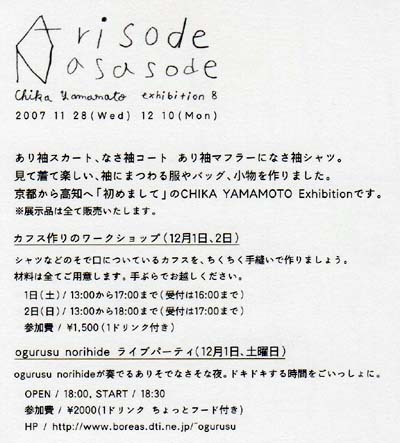 Arisode
Nasasode
Chika Yamamoto exhibition 8
2007 11 28(Wed) 12 10(Mon)
あり袖スカート、なさ袖コート あり袖マフラーになさ袖シャツ。
見て着て楽しい、袖にまつわる服やバッグ、小物を作りました。
京都から高知へ「初めまして」のCHIKA YAMAMOTO Exhibitionです。
※展示品は全て販売いたします。
カフス作りのワークショップ(12月1日、2日)
シャツなどのそで口についているカフスを、ちくちく手縫いで作りましょう。
材料は全てご用意します。手ぶらでお越しください。
1日(土) / 13:00から17:00まで(受付は16:00まで)
2日(日) / 13:00から18:00まで(受付は17:00まで)
参加費 / ¥1,500(1ドリンク付き)
ogurusu norihide ライブパーティ(12月1日、土曜日)
ogurusu norihideが奏でるありそでなさそな夜。ドキドキする時間をごいっしょに。
OPEN / 18:00, START / 18:30
参加費 / ¥2000(1ドリンク ちょっとフード付き)
HP / http://www.boreas.dti.ne.jp/~ogurusu